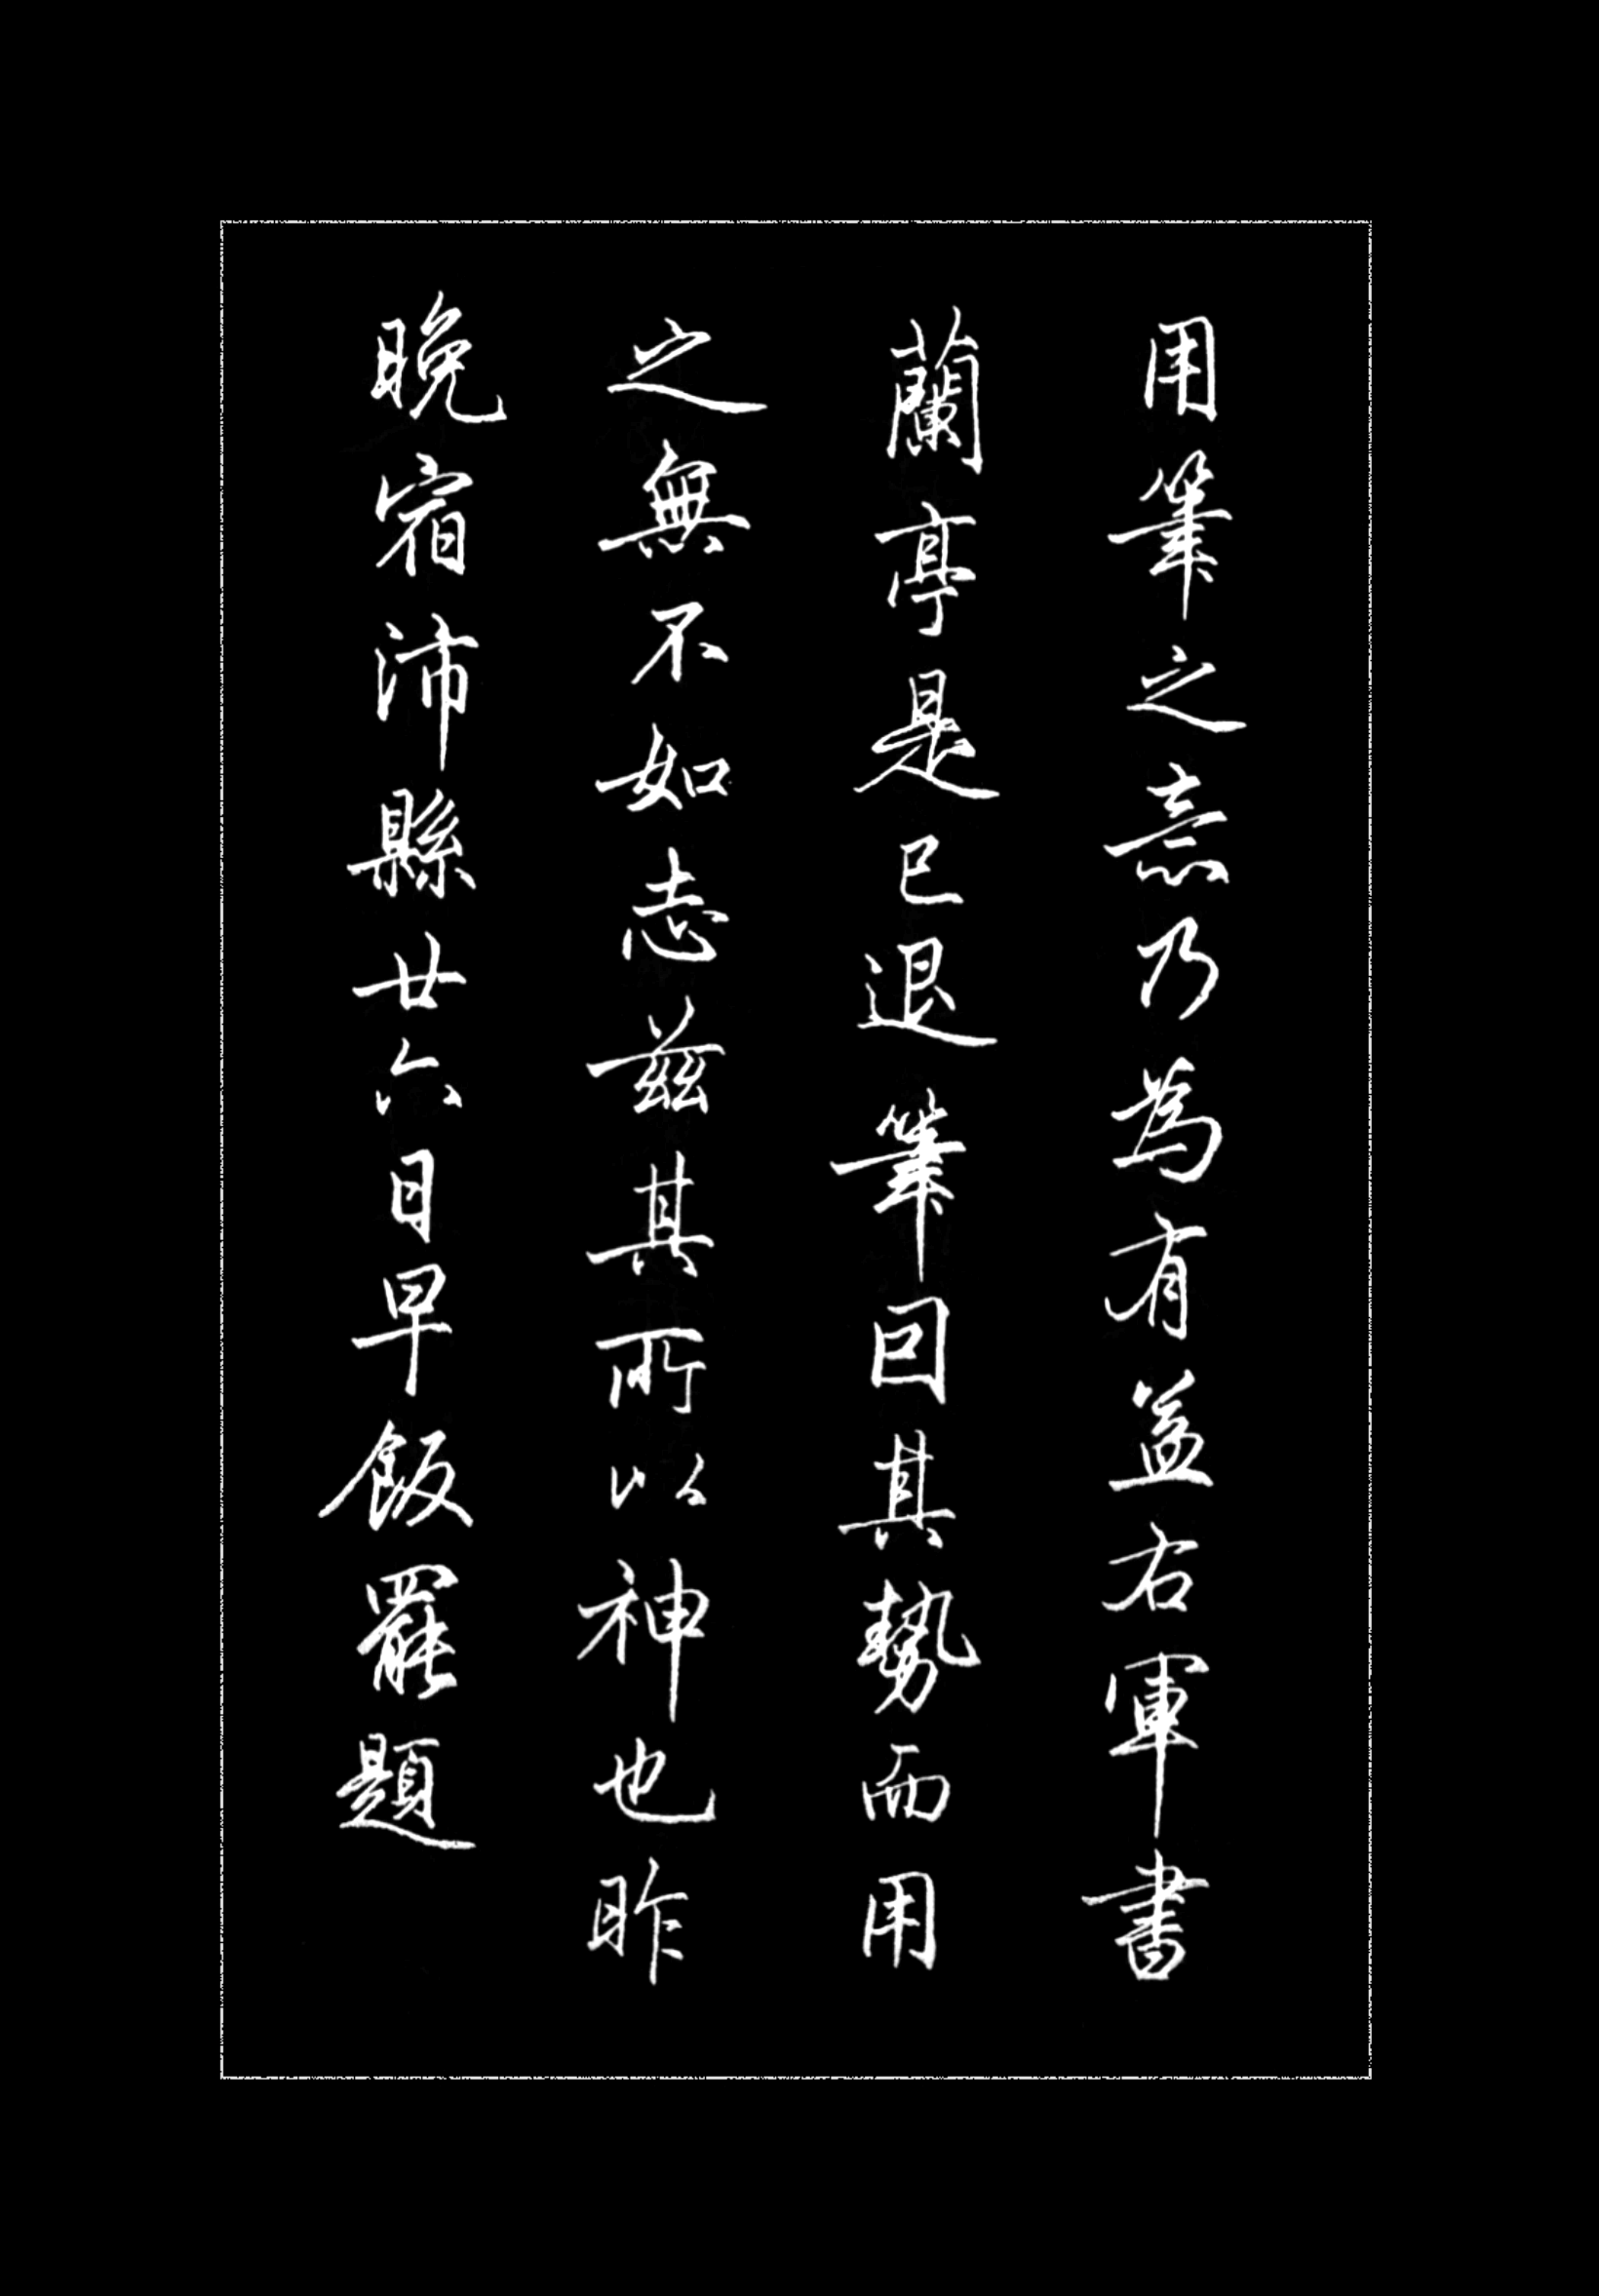 用筆之意乃為有益右軍書
蘭亭是已退筆因其勢而用
之無不如志兹其所以神也昨
晚宿沛縣廿六日早飯罷題